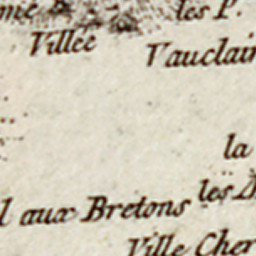 les P.
Villée
Vauclair
la
aux Bretons
les
Ville Cher